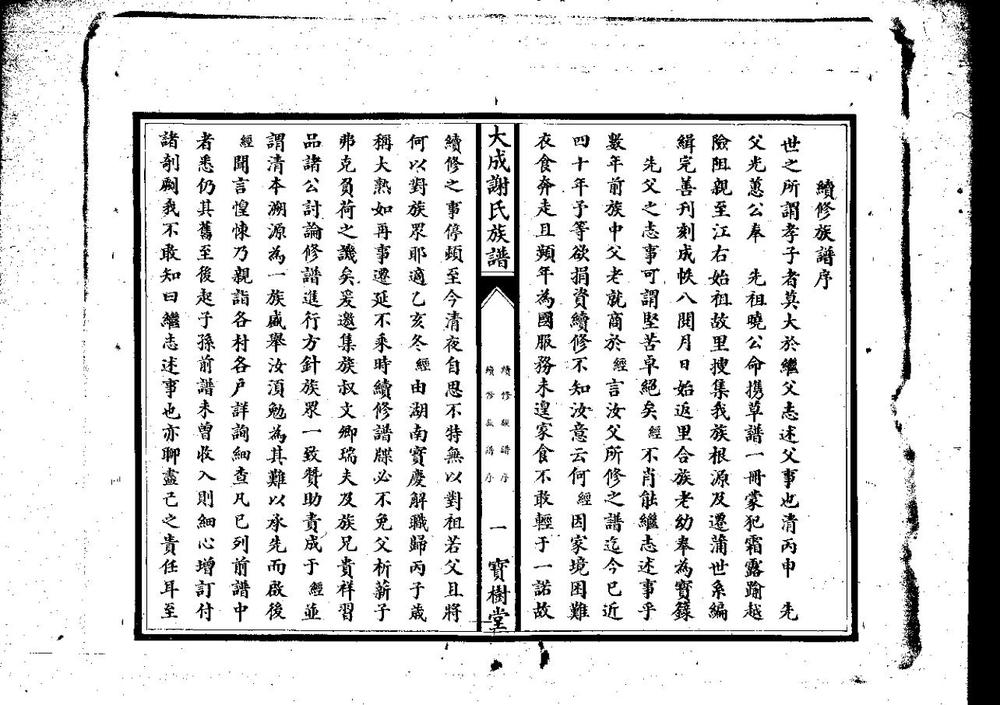 續修族譜序
世之所謂孝子者莫大於繼父志述父事也清丙申　先
父光蕙公奉　先祖曉公命携草譜一冊蒙犯霜露踰越
險阻親至江右始祖故里搜集我族根源及遷蒲世系編
緝完善刊刻成帙八閱月日始返里合族老幼奉為寶籙
先父之志事可謂堅苦卓絕矣經不肖能繼志述事乎
數年前族中父老就商於經言汝父所修之譜迄今已近
四十年予等欲捐資續修不知汝意云何經因家境困難
衣食奔走且頻年為國服務未遑家食不敢輕于一諾故
大成謝氏族譜
續修族譜序
續修族譜序
一
寶樹堂
續修之事停頓至今清夜自思不特無以對祖若父且將
何以對族眾耶適乙亥冬經由湖南寶慶解職歸丙子歲
稱大熟如再事遷延不乘時續修譜牒必不免父析薪子
弗克負荷之譏矣爰邀集族叔文卿瑞夫及族兄貴祥習
品諸公討論修譜進行方針族眾一致贊助責成于經並
謂清本溯源為一族盛舉汝須勉為其難以承先而啟後
經聞言惶悚乃親詣各村各戶詳詢細查凡已列前譜中
者悉仍其舊至後起子孫前譜未曾收入則細心增訂付
諸剞劂我不敢知曰繼志述事也亦聊盡己之責任耳至